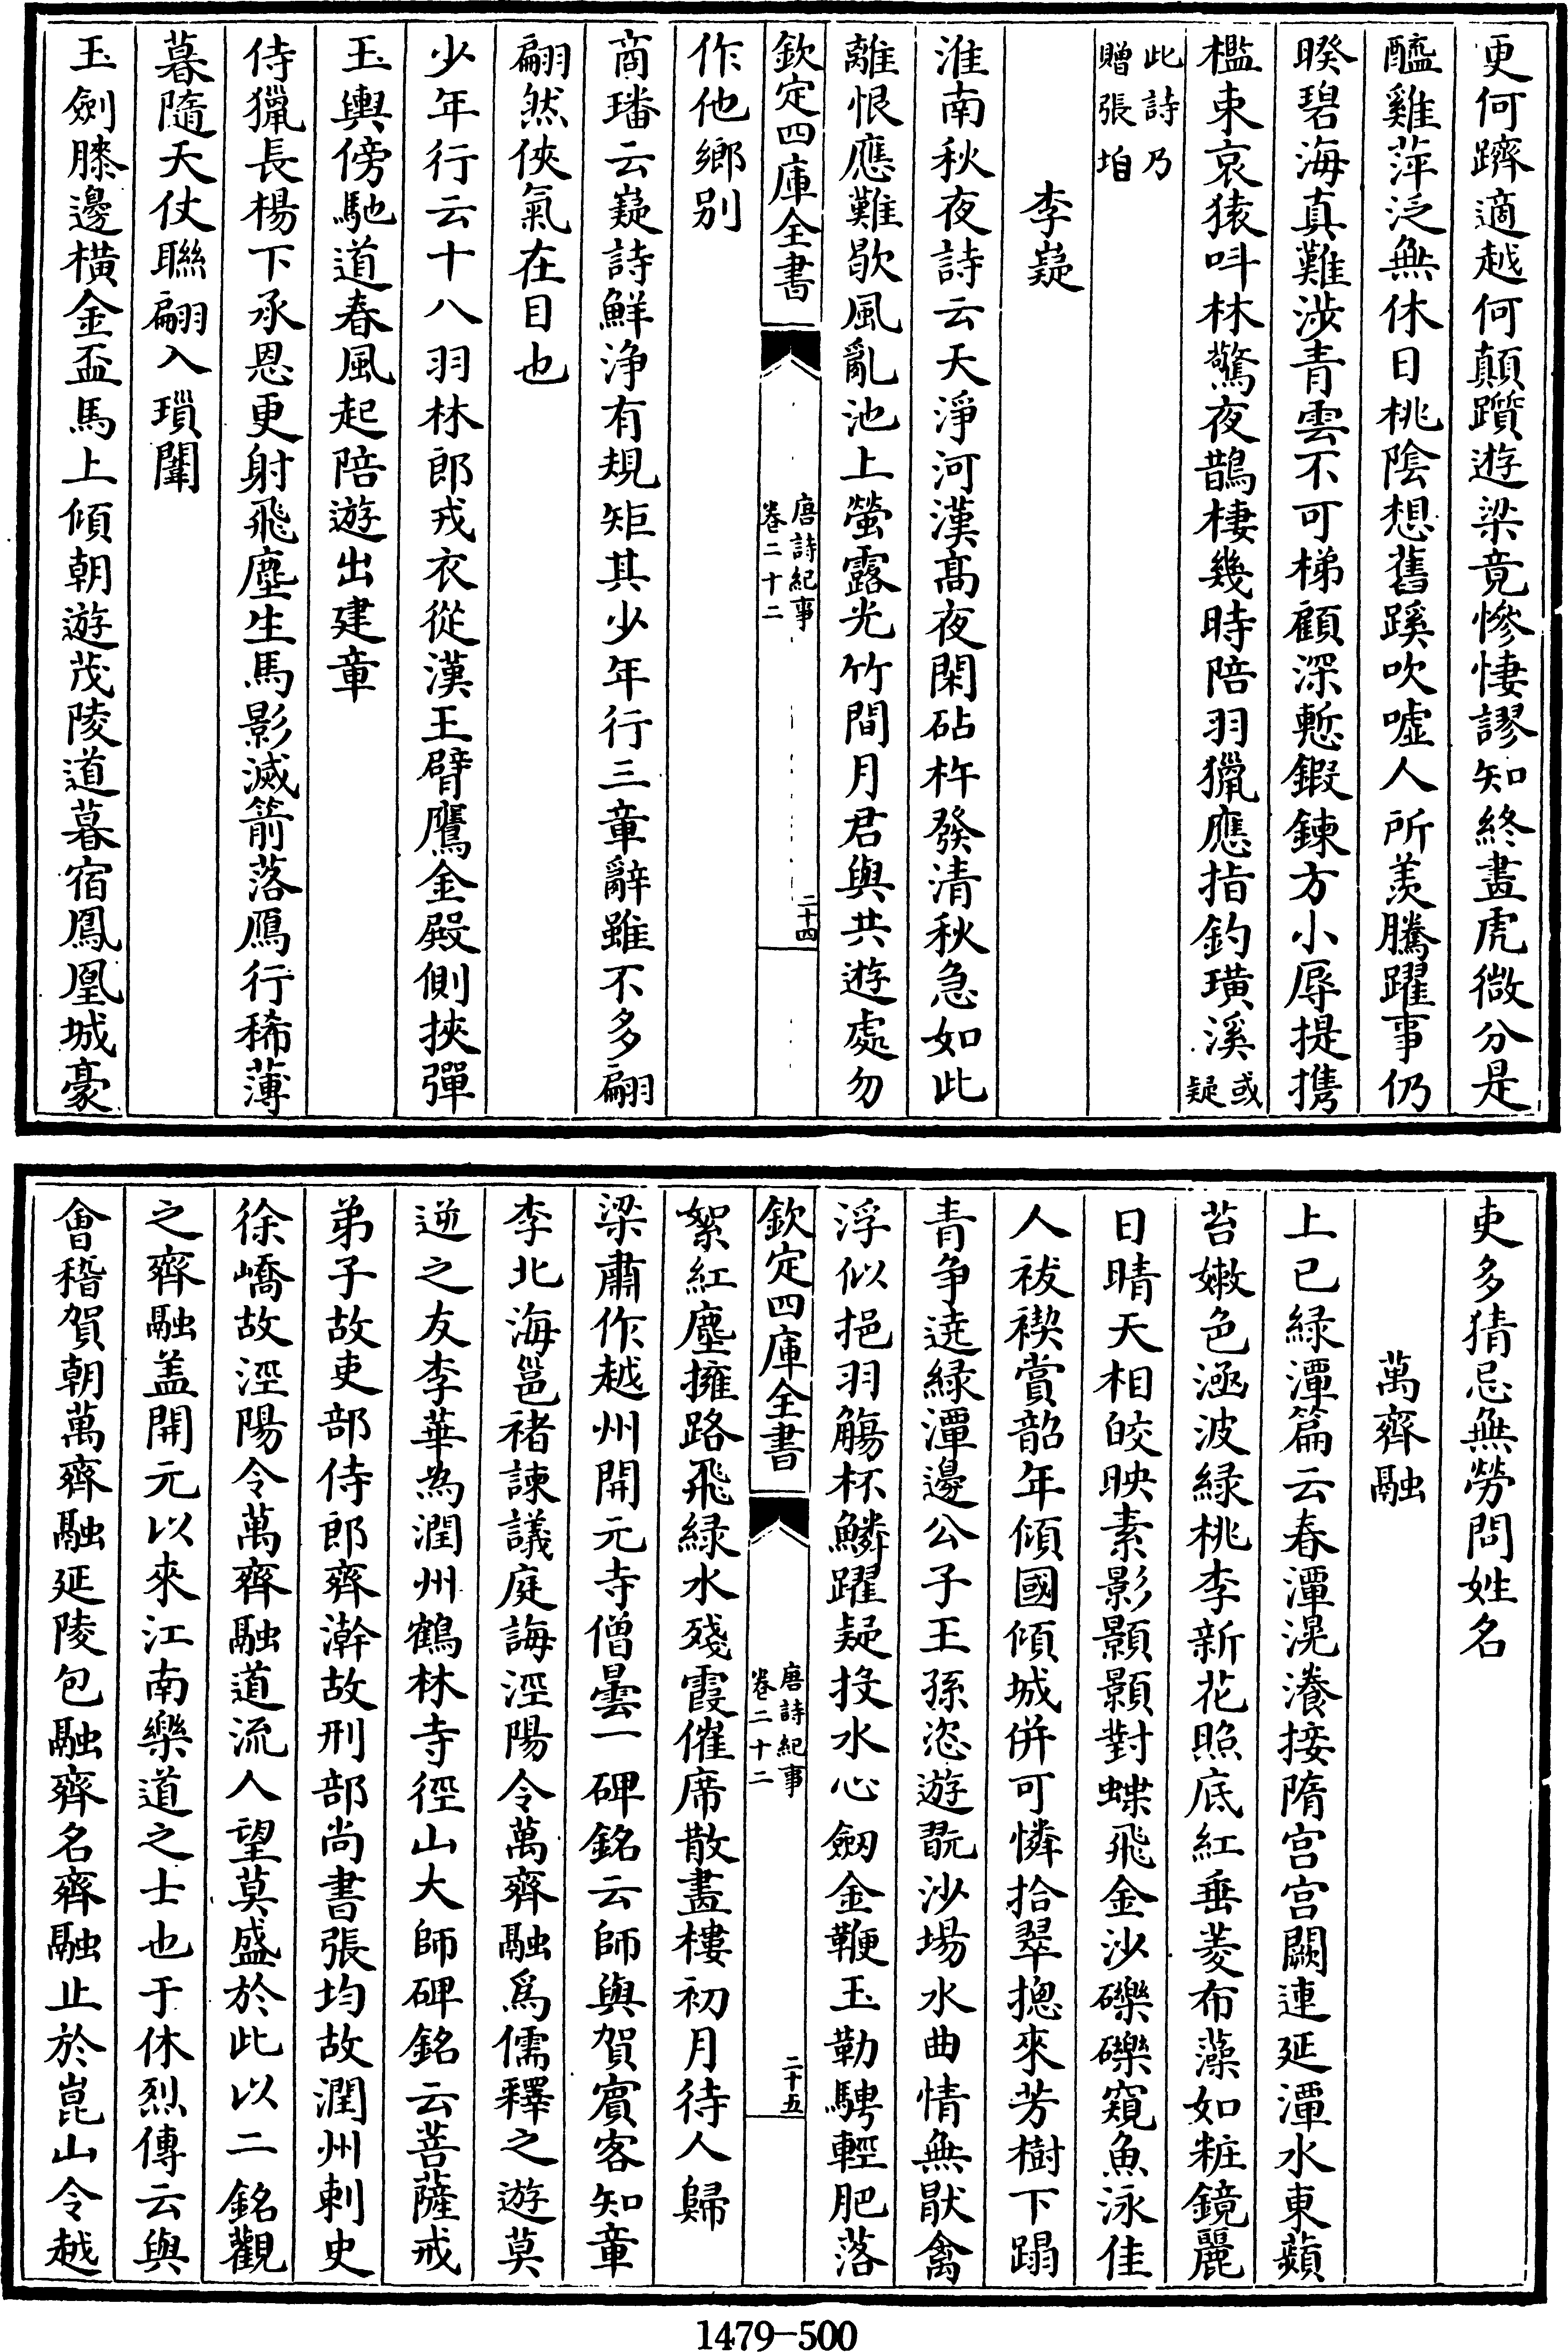 更何躋適越何顛躓遊梁竟慘悽謬知終畫虎微分是
醯雞萍泛無休日桃陰想舊蹊吹噓人所羨騰躍事仍
睽碧海真難涉青雲不可梯顧深慙鍜鍊方小辱提攜
檻束哀猿呌林驚夜鵲棲幾時陪羽獵應指釣璜溪或疑
此詩乃贈張垍
李嶷
淮南秋夜詩云天淨河漢髙夜閑砧杵發清秋急如此
離恨應難歇風亂池上螢露光竹間月君與共遊處勿
欽定四庫全書
唐詩紀事
卷二十二
二十四
作他鄉别
商璠云嶷詩鮮浄有規矩其少年行三章辭雖不多翩
翩然俠氣在目也
少年行云十八羽林郎戎衣從漢王臂鷹金殿側挾彈
玉輿傍馳道春風起陪遊出建章
侍獵長楊下承恩更射飛塵生馬影滅箭落鴈行稀薄
暮隨天仗聯翩入瑣闈
玉劍膝邊橫金盃馬上傾朝遊茂陵道暮宿鳳凰城豪
吏多猜忌無勞問姓名
萬齊融
上已緑潭篇云春潭滉瀁接隋宫宫闕連延潭水東蘋
苔嫩色涵波緑桃李新花照底紅垂菱布藻如粧鏡麗
日晴天相皎映素影顥顥對蝶飛金沙礫礫窺魚泳佳
人祓禊賞韶年傾國傾城併可憐拾翠摠來芳樹下蹋
青争遶緑潭邊公子王孫恣遊翫沙場水曲情無厭禽
浮似挹羽觴杯鱗躍疑投水心劒金鞭玉勒騁輕肥落
欽定四庫全書
唐詩紀事
卷二十二
二十五
絮紅塵擁路飛緑水殘霞催席散畫樓初月待人歸
梁肅作越州開元寺僧曇一碑銘云師與賀賔客知章
李北海邕褚諫議庭誨涇陽令萬齊融爲儒釋之遊莫
逆之友李華為潤州鶴林寺徑山大師碑銘云菩薩戒
弟子故吏部侍郎齊澣故刑部尚書張均故潤州刺史
徐嶠故涇陽令萬齊融道流人望莫盛於此以二銘觀
之齊融盖開元以來江南樂道之士也于休烈傳云與
會稽賀朝萬齊融延陵包融齊名齊融止於崑山令越
1479-500